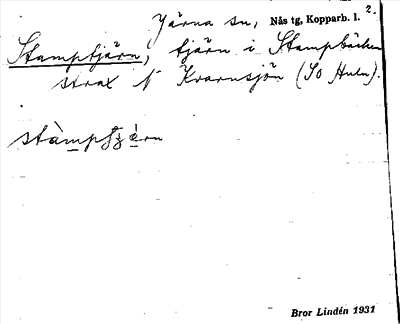 Järna sn, Nås tg, Kopparb. l. 2.
Stamptjärn, tjärn i Stampbäcken
strax N Kvarnsjön (SO Huln).
stàmptjæ̀rn
Bror Lindén 1931